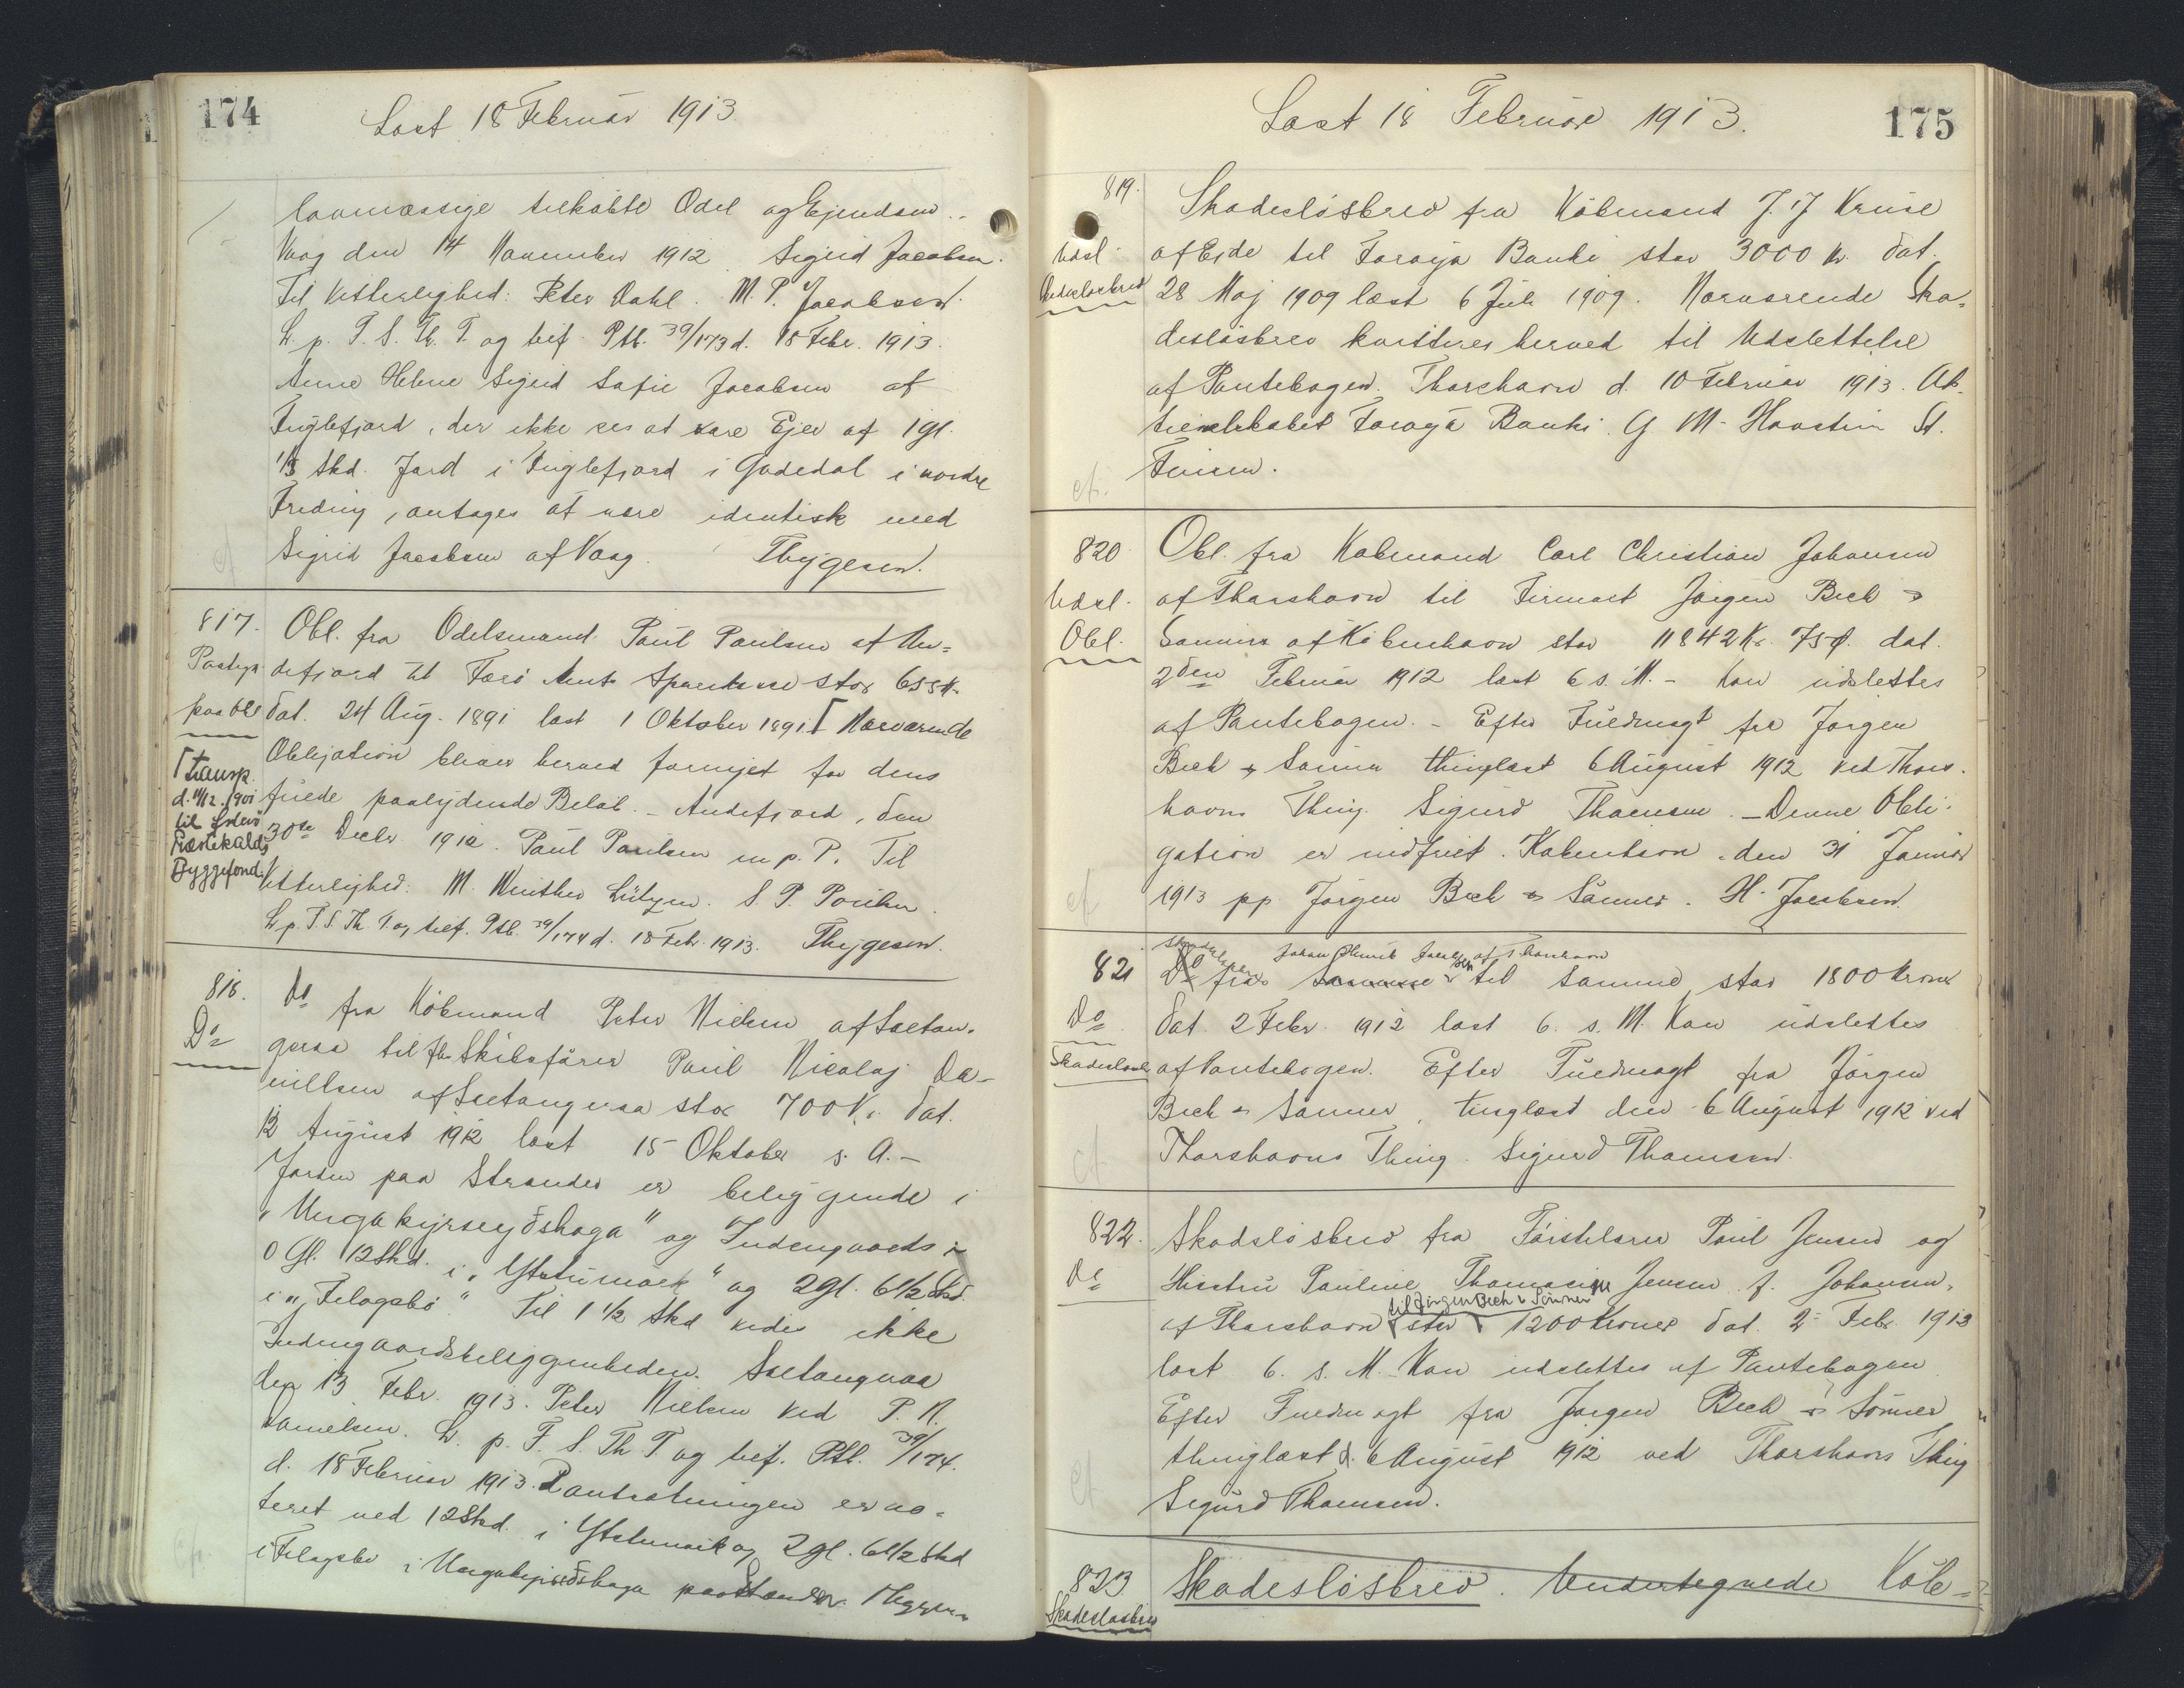 174
Læst 18 Februar 1913
lovmæssige tilkøbte Odel og Ejendom.
Vaag den 14 November 1912. Sigrid Jacobsen.
Til Vitterlighed: Peter Dahl. M. P. Jacobsen.
L. p. F. S. Th. T. og bif. Ptb. 39/173 d. 18 Febr. 1913.
Anne Helene Sigrid Sofie Jacobsen af
Fuglefjord, der ikke ses at være Ejer af 1 gl.
1/3 Skd. Jord i Fuglefjord i Gadedal i nordre
Friding, antages at være identisk med
Sigrid Jacobsen af Vaag. Thygesen.
cf
817. Obl. fra Odelsmand Paul Paulsen af An-
defjord til Færø Amts Sparekasse stor 655 Kr
paa Obl
dat. 24 Aug. 1891 læst 1 Oktober 1891. ⌈ Nærværende
Obligation bliver herved fornyet for dens
⌈ Transp.
d. 11/12. 1901
til
Præstekalds
Byggefond.
fulde paalydende Beløb. – Andefjord, den
30te Decbr 1912. Paul Paulsen m. p. P. Til
Vitterlighed: M. Winther Lützen. S. P. Poulsen.
L. p. F. S. Th. T. og bif. Ptb. 39/174 d. 18 Feb. 1913. Thygesen.
818. Do fra Købmand Peter Nielsen af Saltan-
Do
geraa til fhv Skibsfører Paul Nicolaj Da-
nielsen af Saltangeraa stor 700 Kr. dat.
12 August 1912 læst 15 Oktober s. A. –
Jorden paa Strander er beliggende i
"Ungakyrseyðshaga" og Indengaards i
0 Gl. 12 Skd. i "Ytstumørk" og 2 gl. 6 1/2 Skd.
i "Felagsbø." Til 1 1/2 Skd vides ikke
Indengaardsbeliggenheden. Saltangeraa
den 13 Febr. 1913. Peter Nielsen ved P. N.
Danielsen. L. p. F. S. Th. T. og bif. Ptb. 39/174.
d. 18 Februar 1913. Pantsætningen er no-
teret ved 12 Skd. i Ytstumørk og 2 gl. 6 1/2 Skd
i Felagsbø i Ungakyrseyðshaga paa Strander. Thygesen
175
Læst 18 Februar 1913.
819.
Udsl.
Skadesløsbrev
Skadesløsbrev fra Købmand J. J Kruse
af Ejde til Føroya Banki stor 3000 Kr. dat.
28 Maj 1909 læst 6 Juli 1909. Nærværende Ska-
desløsbrev kvitteres herved til Udslettelse
af Pantebogen. Thorshavn d. 10 Februar 1913. Ak-
tieselskabet Føroya Banki. G. M. Havstein St.
cf.
820
Udsl.
Obl.
Obl. fra Købmand Carl Christian Johansen
af Thorshavn til Firmaet Jørgen Bech &
Sønner af København stor 11842 Kr. 75 Ø. dat.
2den Februar 1912 læst 6 s. M. – Kan udslettes
af Pantebogen. – Efter Fuldmagt fra Jørgen
Bech & Sønner thinglæst 6 August 1912 ved Thors-
havns Thing. Sigurd Thomsen. – Denne Obli-
gation er indfriet. København den 31 Januar
1913 pp. Jørgen Bech & Sønner. H. Jacobsen.
cf
821
Do
Skadesløsb
Skadesløsbrev Johan Henrik Joensen af Thorshavn
Do fra Samme til Samme, stor 1800 Kroner
dat. 2 Febr. 1912 læst 6. s. M. Kan udslettes
af Pantebogen. Efter Fuldmagt fra Jørgen
Bech & Sønner, tinglæst den 6 August 1912 ved
Thorshavns Thing. Sigurd Thomsen.
cf
822.
Do
Skadesløsbrev fra Førstelærer Paul Jensen og
Hustru Pauline Thomasine Jensen f. Johansen,
til Jørgen Bech & Sønner
af Thorshavn stor 1200 Kroner dat. 2 Feb. 1912
læst 6. s. M. Kan udslettes af Pantebogen
Efter Fuldmagt fra Jørgen Bech & Sønner
thinglæst d. 6 August 1912 ved Thorshavns Thing
Sigurd Thomsen.
cf
823
Skadesløsbrev
Skadesløsbrev. Undertegnede Køb-